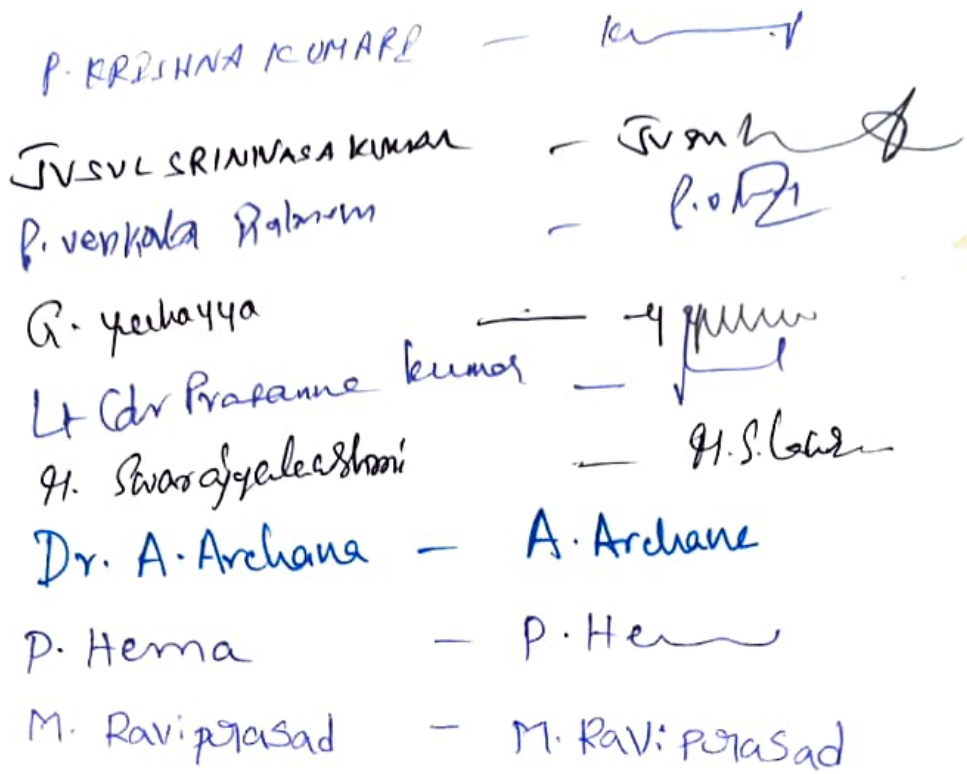 P. KRISHNA KUMARI -
JVSVL SRINIVASA KUMAR -
P. Venkata -
G. -
Lt Cdr Prasanna Kumar -
H. Swarajyalakshmi - H.S.
Dr. A. Archana - A. Archana
P. Hema - P. He
M. Raviprasad - M. Raviprasad